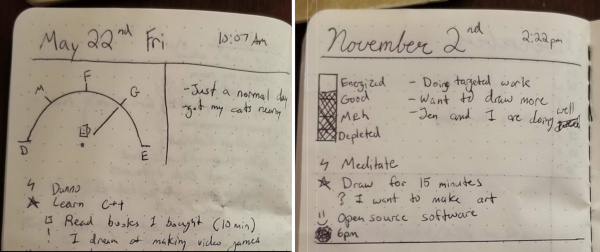 May 22nd Fri
10:07 Am
F
M
G
D
E
- Just a normal day
- got my cats nearby
Dunno
Learn C++
Read books I bought (10 min)
! I dream of making video games
November 2nd
2:22pm
Energized
Good
Meh
Depleted
- Doing targeted work
- Want to draw more
- Jen and I are doing well
Meditate
Draw for 15 minutes
I want to make art
Open source software
6pm